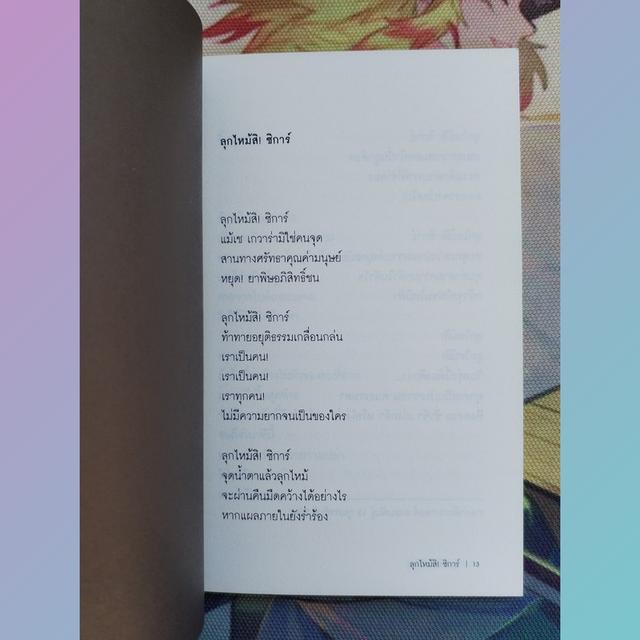 ลุกไหม้สิ! ซิการ์
ลุกไหม้สิ! ซิการ์
แม้เช เกวาร่ามิใช่คนจุด
สานทางศรัทธาคุณค่ามนุษย์
หยุด! ยาพิษอภิสิทธิ์ชน
ลุกไหม้สิ! ซิการ์
ท้าทายอยุติธรรมเกลื่อนกล่น
เราเป็นคน!
เราเป็นคน!
เราทุกคน!
ไม่มีความยากจนเป็นของใคร
ลุกไหม้สิ! ซิการ์
จุดน้ำตาแล้วลุกไหม้
จะผ่านคืนมืดคว้างได้อย่างไร
หากแผลภายในยังร่ำร้อง
ลุกไหม้สิ! ซิการ์ | 13